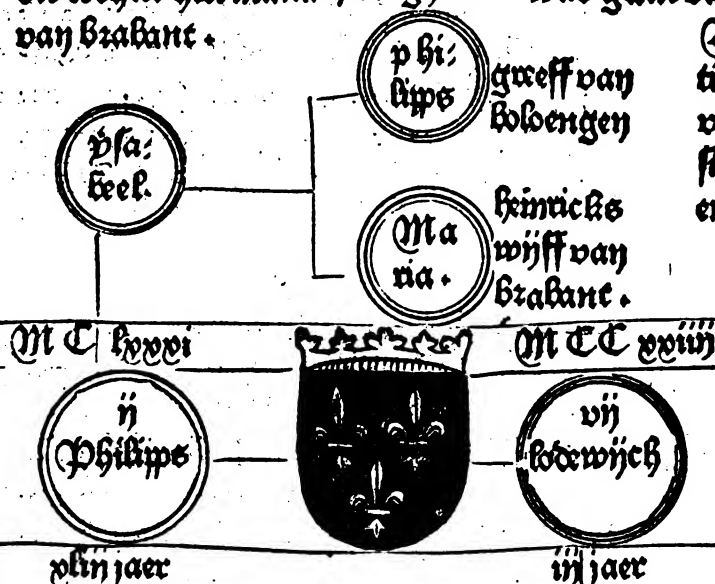 van brabant .
phi:
lipps
greeff van
boloengen
ysa:
beel.
Ma
ria.
heinricks
wijff van
brabant .
M C lxxxi
M CC xxiiij
ij
Philipps
vij
lodewijch
xliij jaer
iij jaer